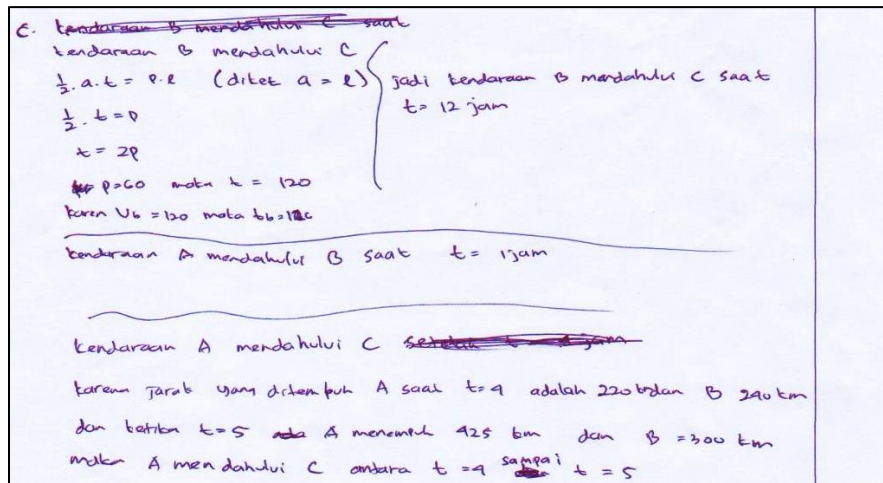 c. kendaraan B mendahului C saat
kendaraan B mendahului C
1/2 . a . t = p . l (diket a = l)
1/2 . t = p
t = 2p
p=60 maka t = 120
karen Vb = 120 maka
jadi kendaraan B mendahului C saat
t= 12 jam
kendaraan A mendahului B saat t= 1 jam
kendaraan A mendahului C setelah t = 4 jam
karena Jarak yang ditempuh A saat t=4 adalah 220 dan B 240 km
dan ketika t=5 A menempuh 425 km dan B = 300 km
maka A mendahului C antara t =4 sampai t = 5